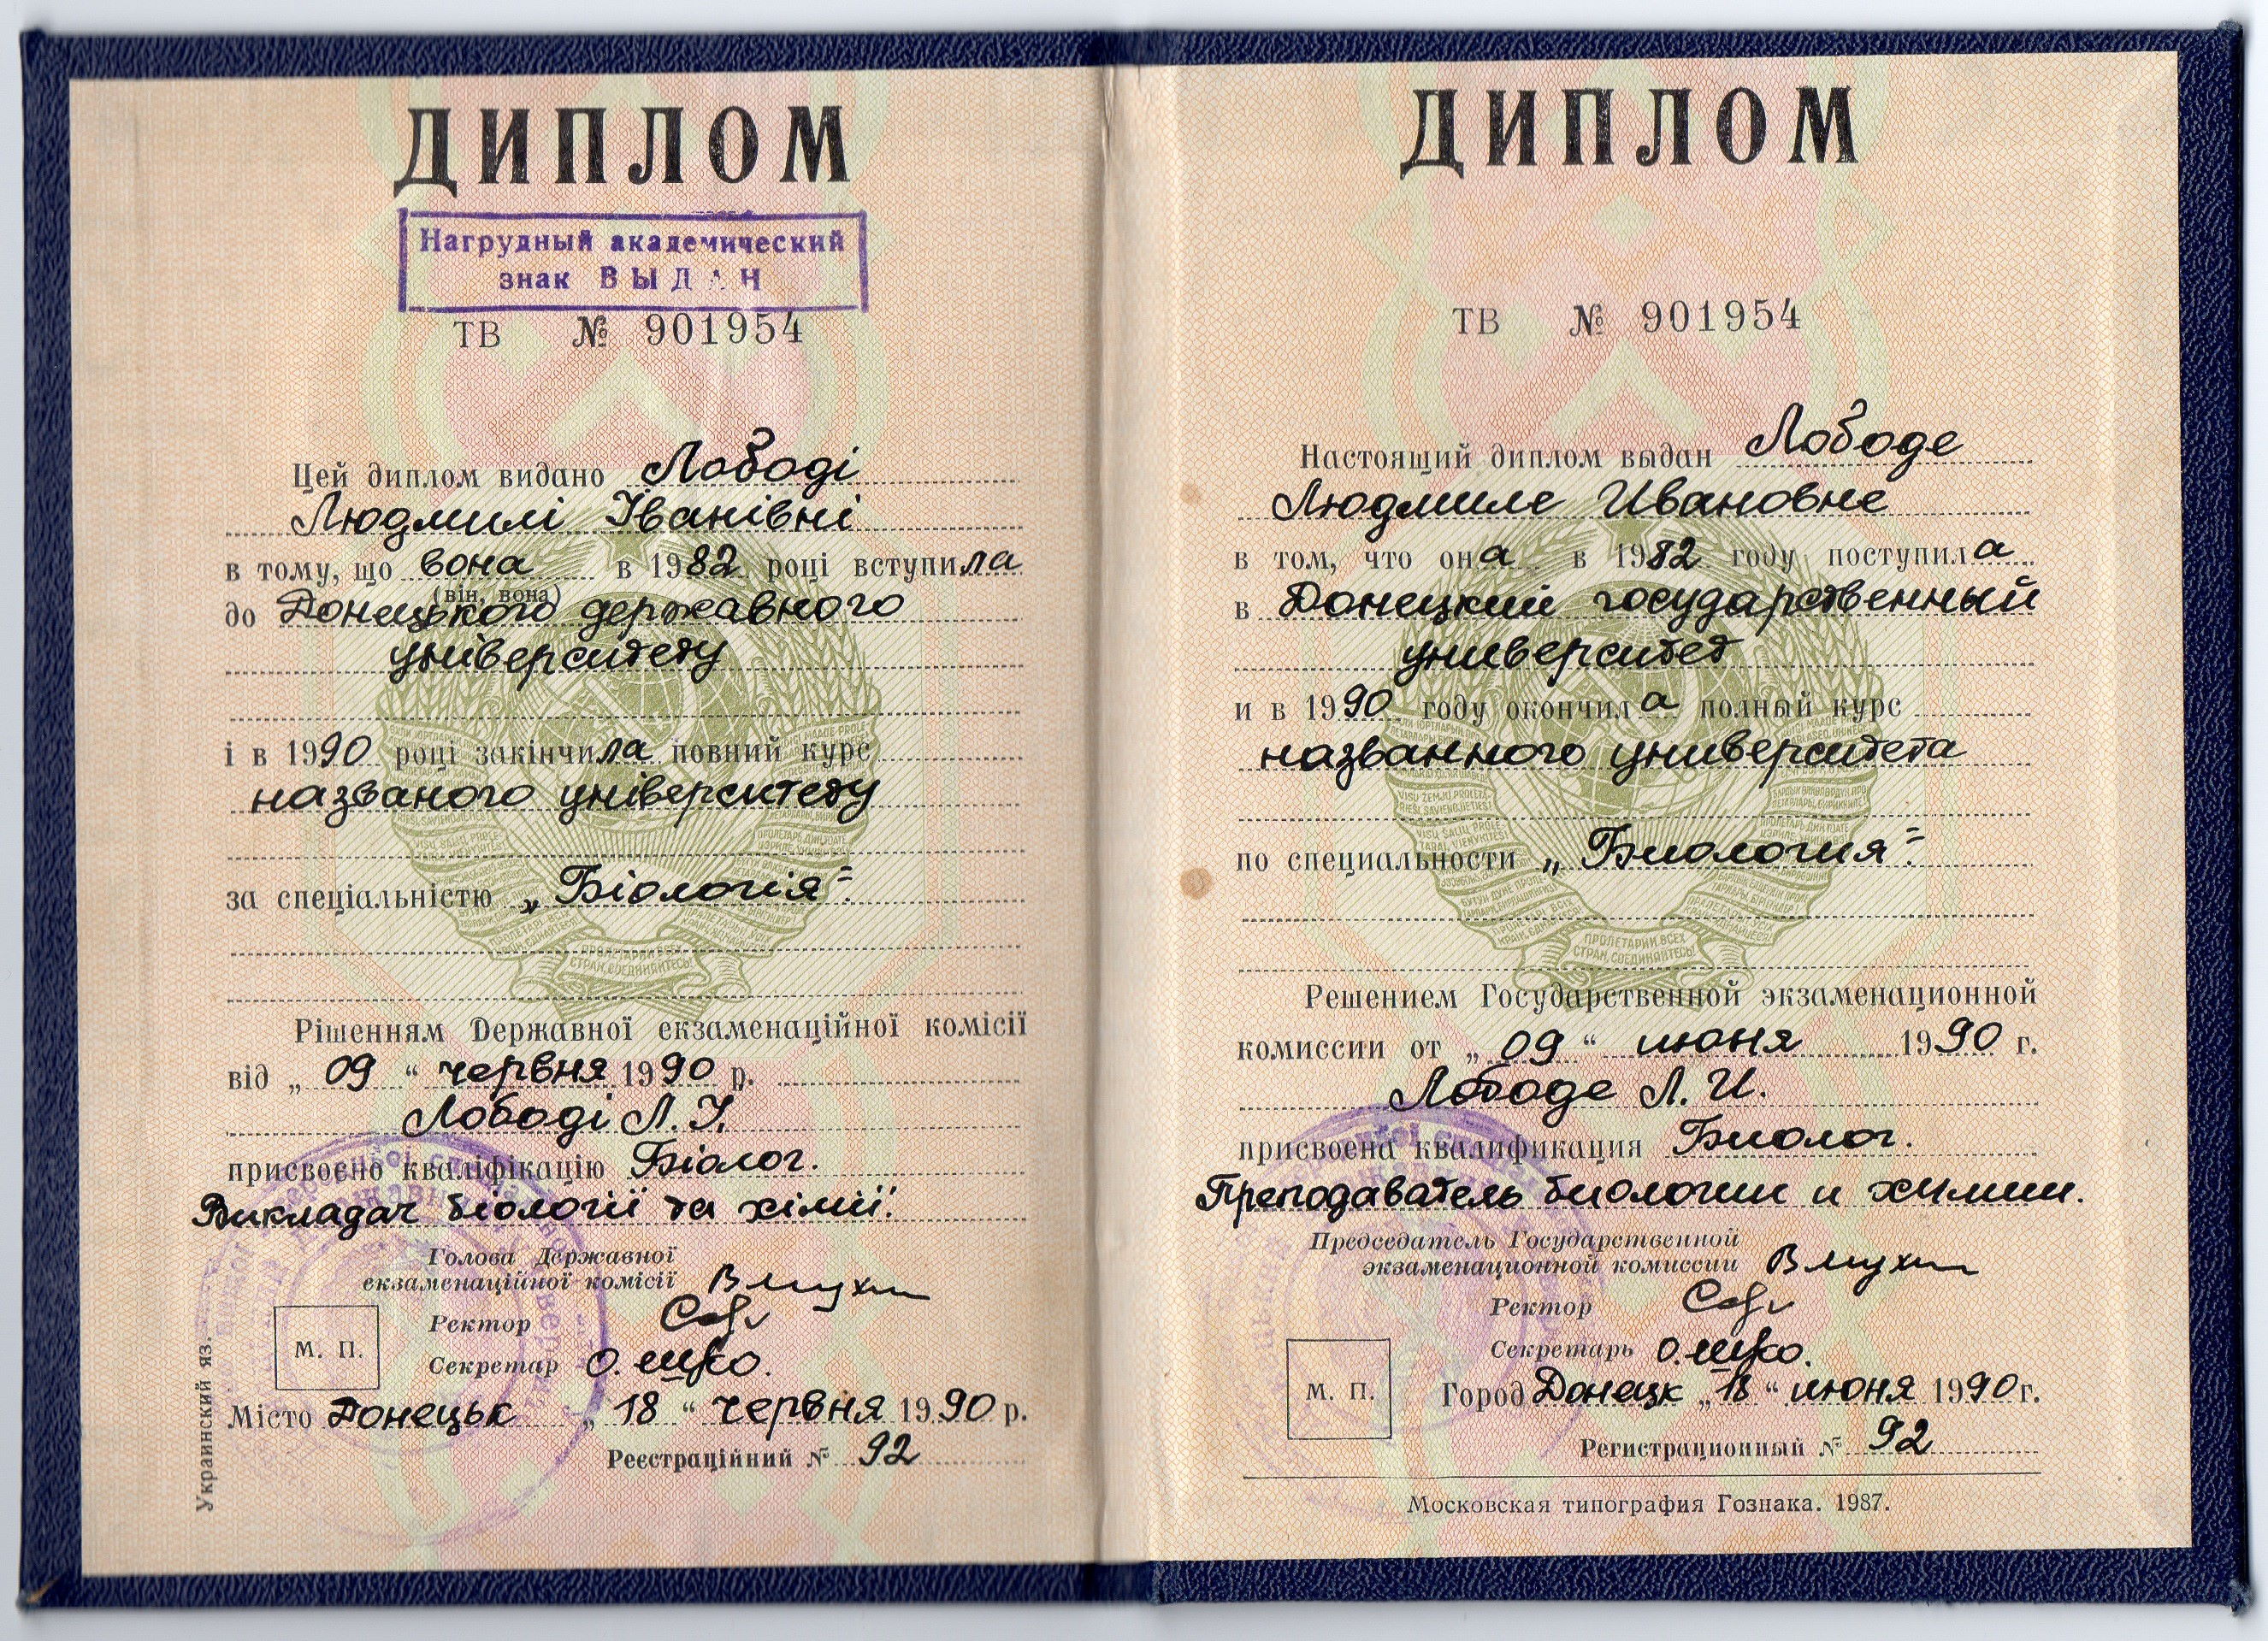 ДИПЛОМ
Нагрудный академический
знак ВЫДАН
ТВ № 901954
Цей диплом видано Лободі
Людмилі Іванівні
в тому, що вона в 1982 році вступила
(він, вона)
до Донецького державного
університету
і в 1990 році закінчила повний курс
названого університету
за спеціальністю „Біологія“
Рішенням Державної екзаменаційної комісії
від „09“ червня 1990 р.
Лободі Л.І.
присвоєно кваліфікацію Біолог.
Викладач біології та хімії.
Голова Державної
екзаменаційної комісії
Ректор
М. П.
Секретар
Місто Донецьк „18“ червня 1990 р.
Реєстраційний № 92
Украинский яз.
ДИПЛОМ
ТВ № 901954
Настоящий диплом выдан Лободе
Людмиле Ивановне
в том, что она в 1982 году поступила
в Донецкий государственный
университет
и в 1990 году окончила полный курс
названного университета
по специальности „Биология“
ПРОЛЕТАРИИ ВСЕХ
СТРАН, СОЕДИНЯЙТЕСЬ!
Решением Государственной экзаменационной
комиссии от „09“ июня 1990 г.
Лободе Л.И.
присвоена квалификация Биолог.
Преподаватель биологии и химии.
Председатель Государственной
экзаменационной комиссии
Ректор
Секретарь
М. П.
Город Донецк „18“ июня 1990 г.
Регистрационный № 92
Московская типография Гознака. 1987.